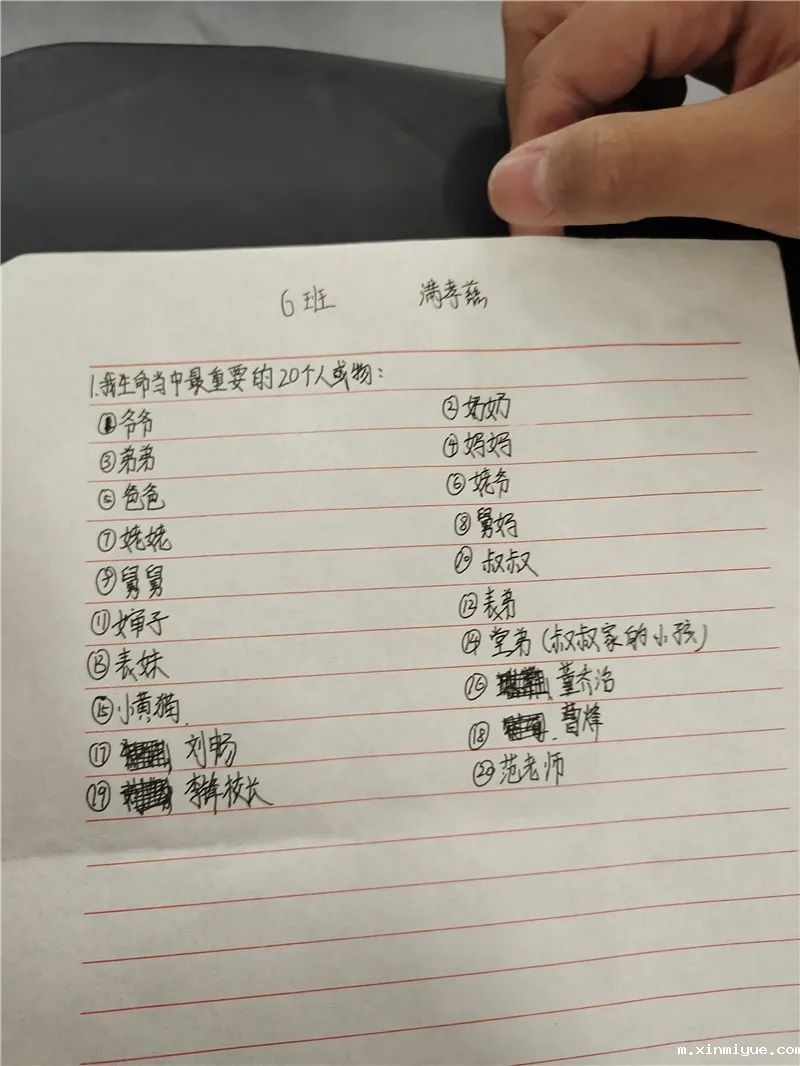 6班 满孝慈
1.我生命当中最重要的20个人或物:
①爷爷 ②奶奶
③弟弟 ④妈妈
⑤爸爸 ⑥姥爷
⑦姥姥 ⑧舅妈
⑨舅舅 ⑩叔叔
⑪婶子 ⑫表弟
⑬表妹 ⑭堂弟(叔叔家的小孩)
⑮小黄猫. ⑯ 董乔治
⑰ 刘畅 ⑱ 曹烽
⑲ 李锋校长 ⑳范老师
m.xinmiyue.com